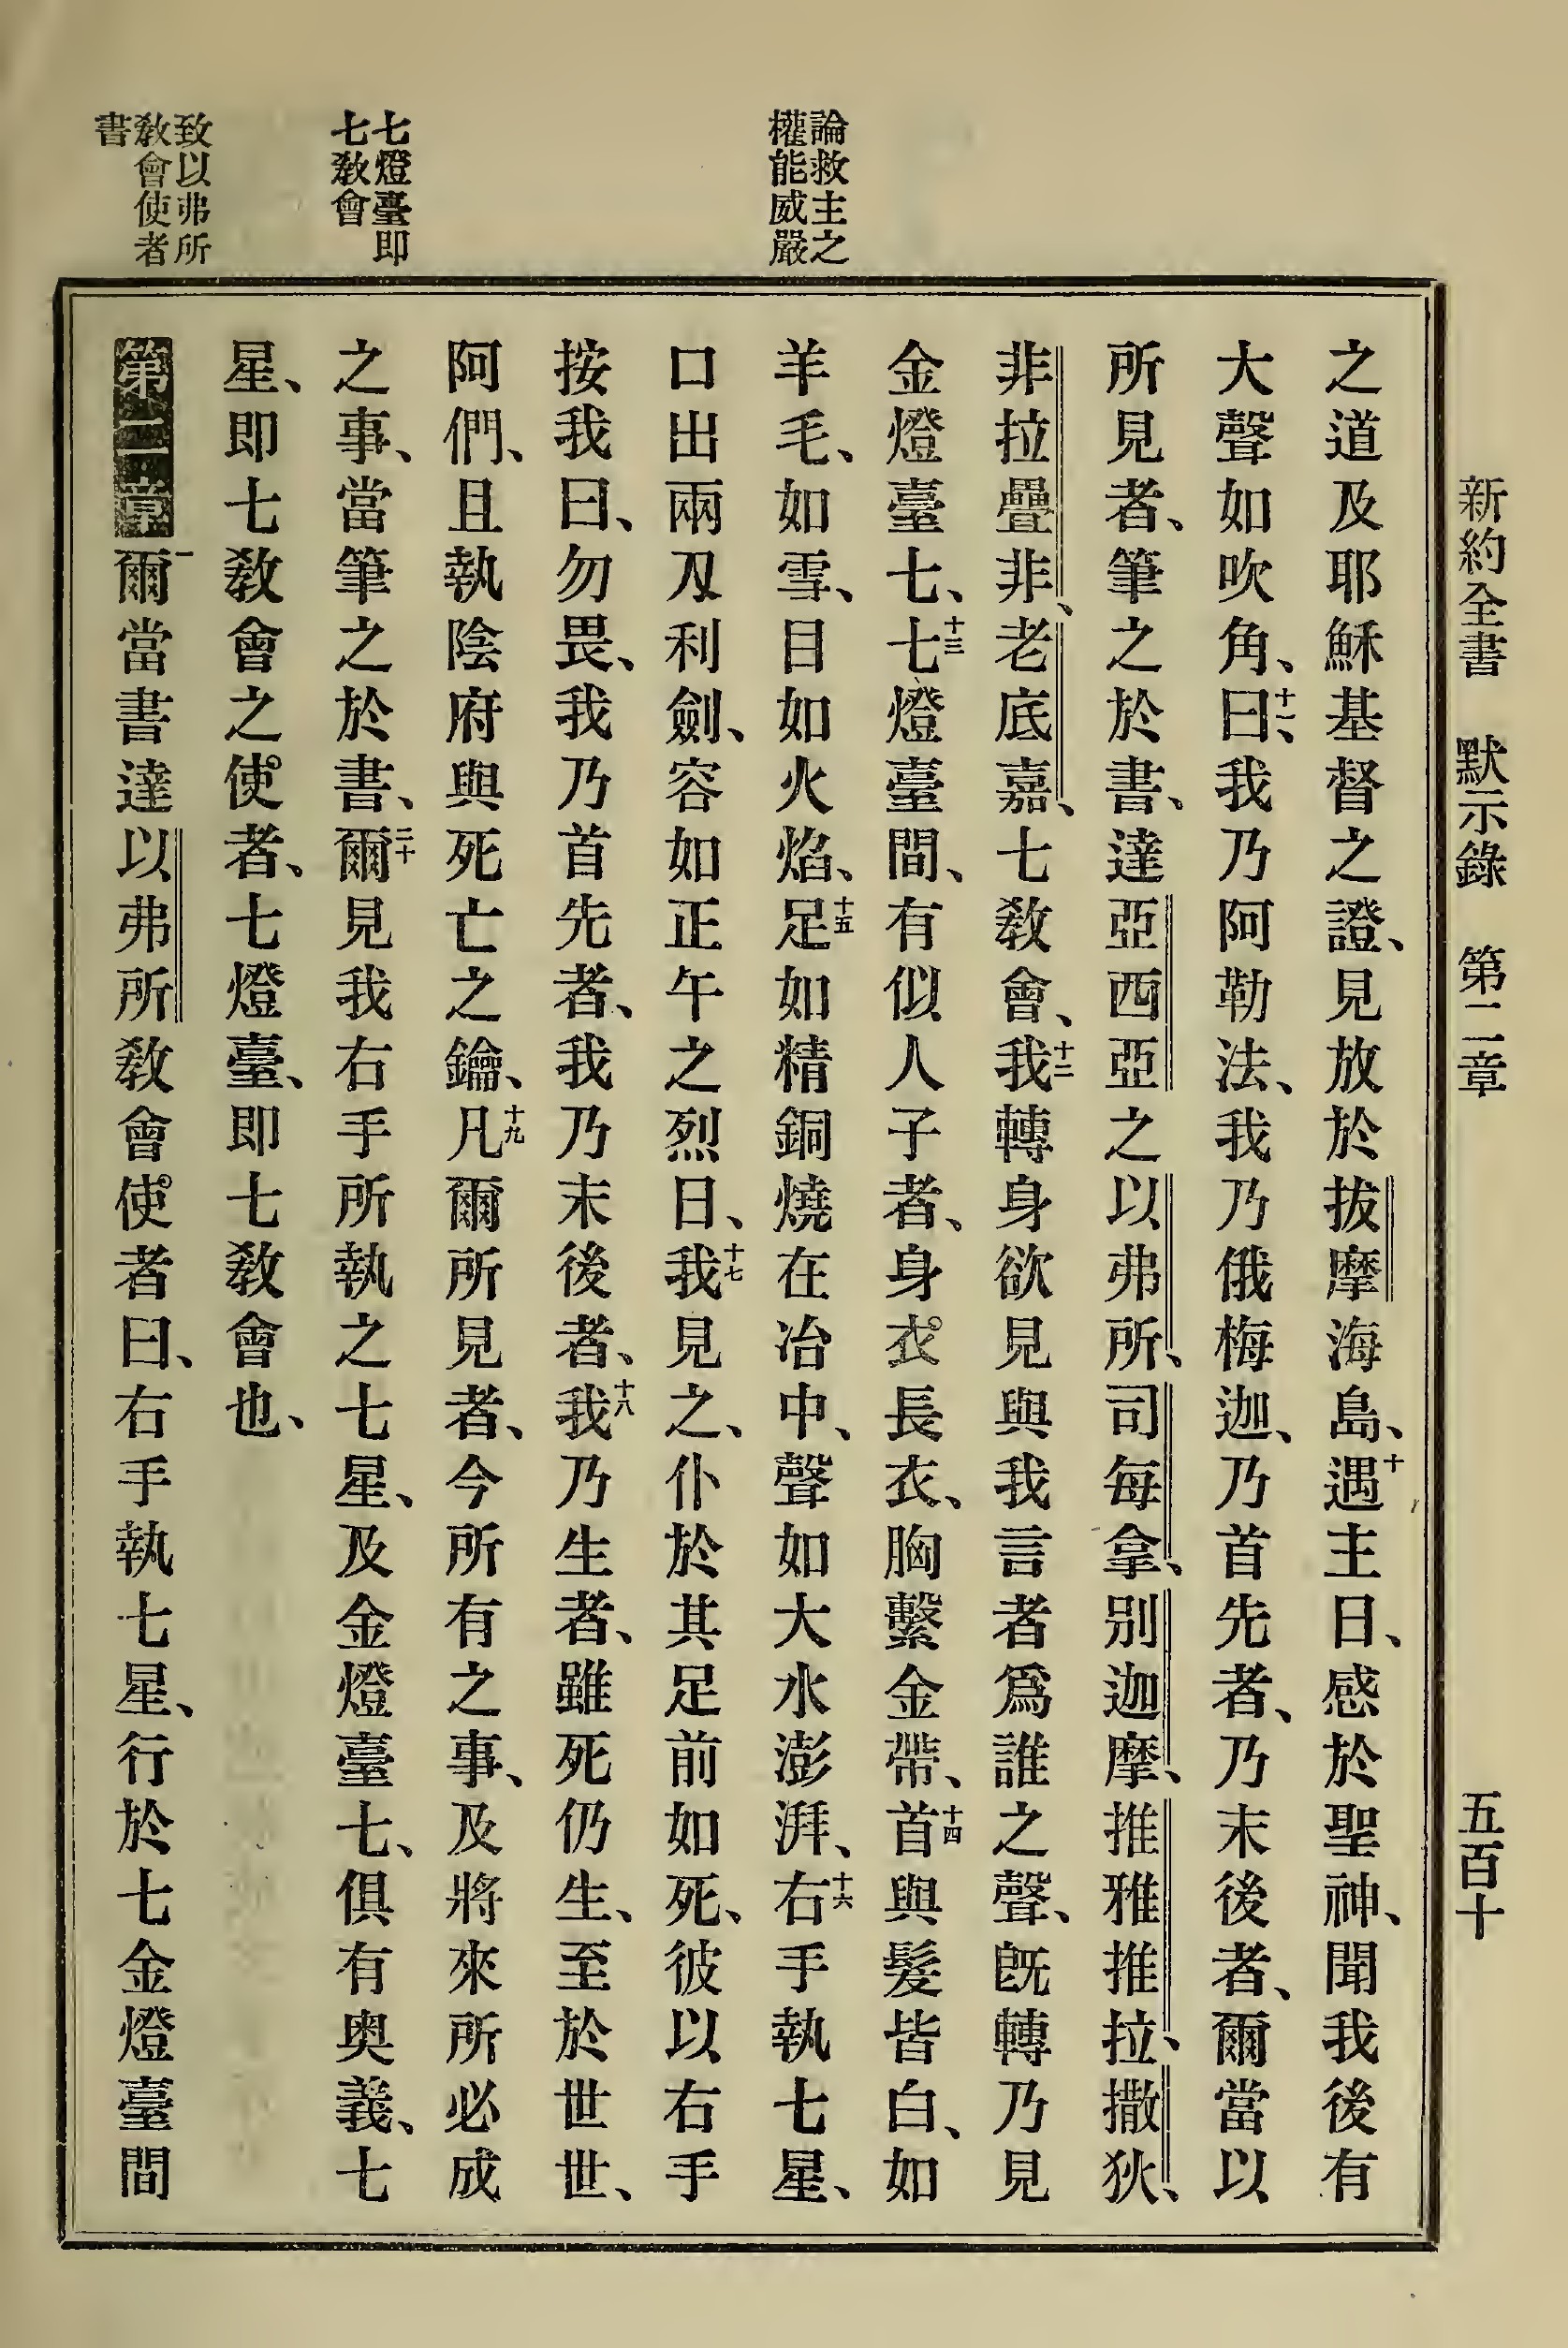 新約全書 默示錄 第二章 五百十
論救主之
權能威嚴
七燈臺即
七敎會
致以弗所
敎會使者
書
之道及耶穌基督之證、見放於拔摩海島、十遇主日、感於聖神、聞我後有
大聲如吹角、十一曰、我乃阿勒法、我乃俄梅迦、乃首先者、乃末後者、爾當以
所見者、筆之於書、達亞西亞之以弗所、司每拿、別迦摩、推雅推拉、撒狄、
非拉疊非、老底嘉、七敎會、十二我轉身欲見與我言者爲誰之聲、旣轉乃見
金燈臺七、十三七燈臺間、有似人子者、身衣長衣、胸繫金帶、十四首與髮皆白、如
羊毛、如雪、目如火焰、十五足如精銅燒在冶中、聲如大水澎湃、十六右手執七星、
口出兩刃利劍、容如正午之烈日、十七我見之、仆於其足前如死、彼以右手
按我曰、勿畏、我乃首先者、我乃末後者、十八我乃生者、雖死仍生、至於世世、
阿們、且執陰府與死亡之鑰、十九凡爾所見者、今所有之事、及將來所必成
之事、當筆之於書、二十爾見我右手所執之七星、及金燈臺七、俱有奥義、七
星、即七敎會之使者、七燈臺、即七敎會也、
第二章一爾當書達以弗所敎會使者曰、右手執七星、行於七金燈臺間